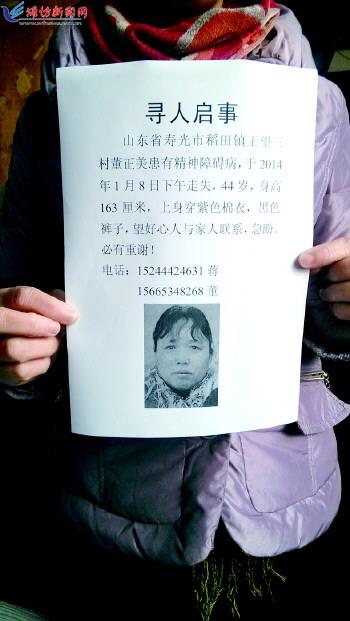 潍坊新闻网
寻人启事
山东省寿光市稻田镇王望三
村董正美患有精神障碍病，于2014
年1月8日下午走失，44岁，身高
163厘米，上身穿紫色棉衣，黑色
裤子，望好心人与家人联系，急盼。
必有重谢！
电话：15244424631 蒋
15665348268 董